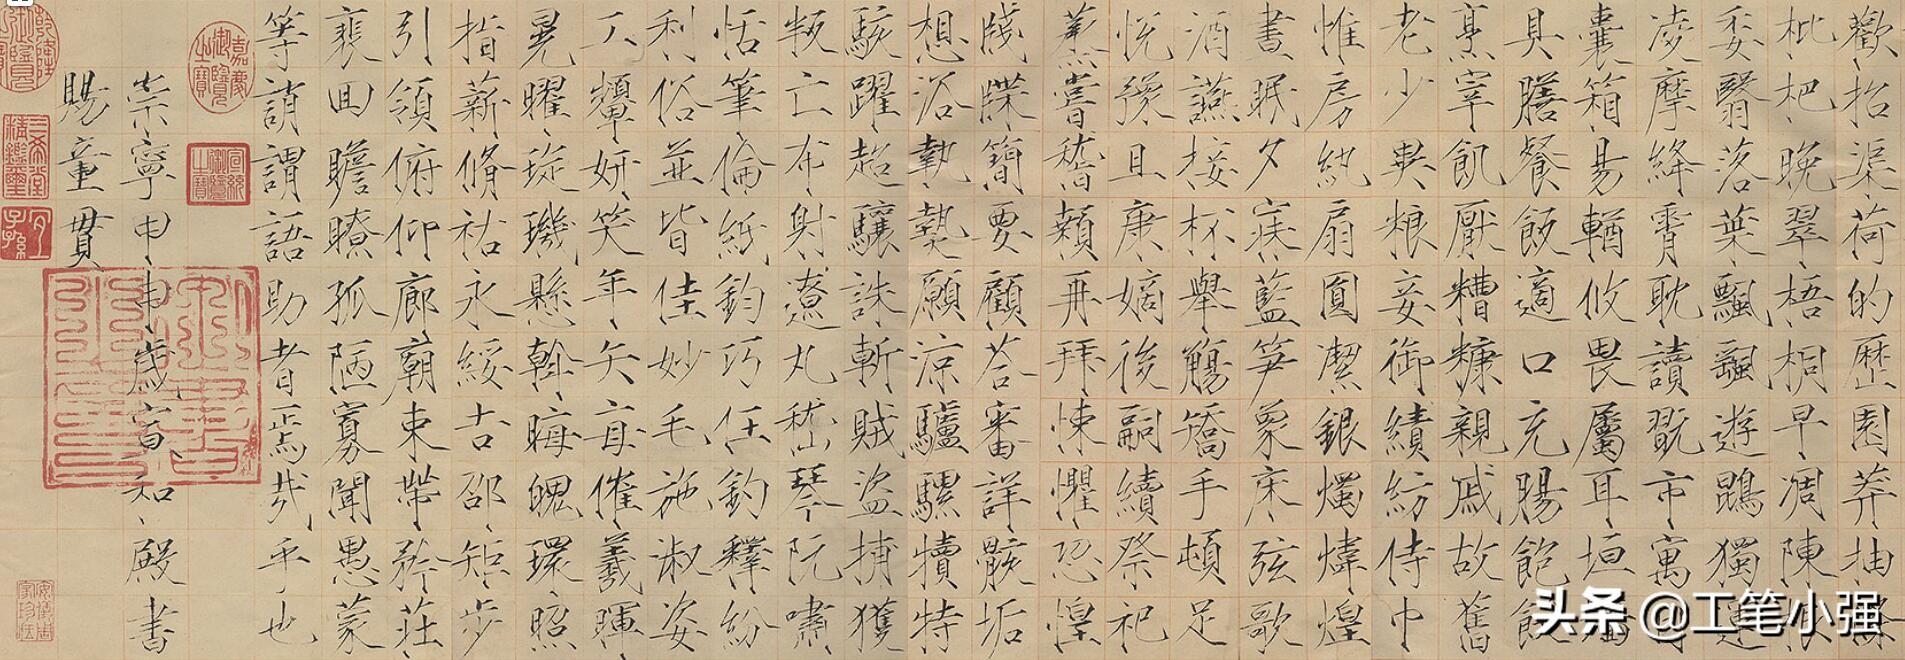 歡招渠荷的歷園莽抽條
枇杷晚翠梧桐早凋陳根
委翳落葉飄颻遊鵾獨運
凌摩絳霄耽讀翫市寓目
囊箱易輶攸畏屬耳垣牆
具膳餐飯適口充腸飽飫
烹宰飢厭糟糠親戚故舊
老少異粮妾御績紡侍巾
惟房紈扇圓潔銀燭煒煌
晝眠夕寐藍笋象床弦歌
酒讌接杯舉觴矯手頓足
悅豫且康嫡後嗣續祭祀
蒸嘗稽顙再拜悚懼恐惶
牋牒簡要顧荅審詳骸垢
想浴執熱願涼驢騾犢特
駭躍超驤誅斬賊盜捕獲
叛亡布射遼丸嵇琴阮嘯
恬筆倫紙鈞巧任釣釋紛
利俗並皆佳妙毛施淑姿
工顰妍笑年矢每催羲暉
晃曜璇璣懸斡晦魄環照
指薪脩祜永綏吉邵矩步
引領俯仰廊廟束帶矜莊
裵回瞻瞭孤陋寡聞愚蒙
等誚謂語助者焉哉乎也
嘉慶御覽之寶
宣統御覽之寶
崇寧甲申歲宣和殿書
賜童貫
乾隆御覽之寶
三希堂精鑑璽
宜子孫
头条 @工笔小强